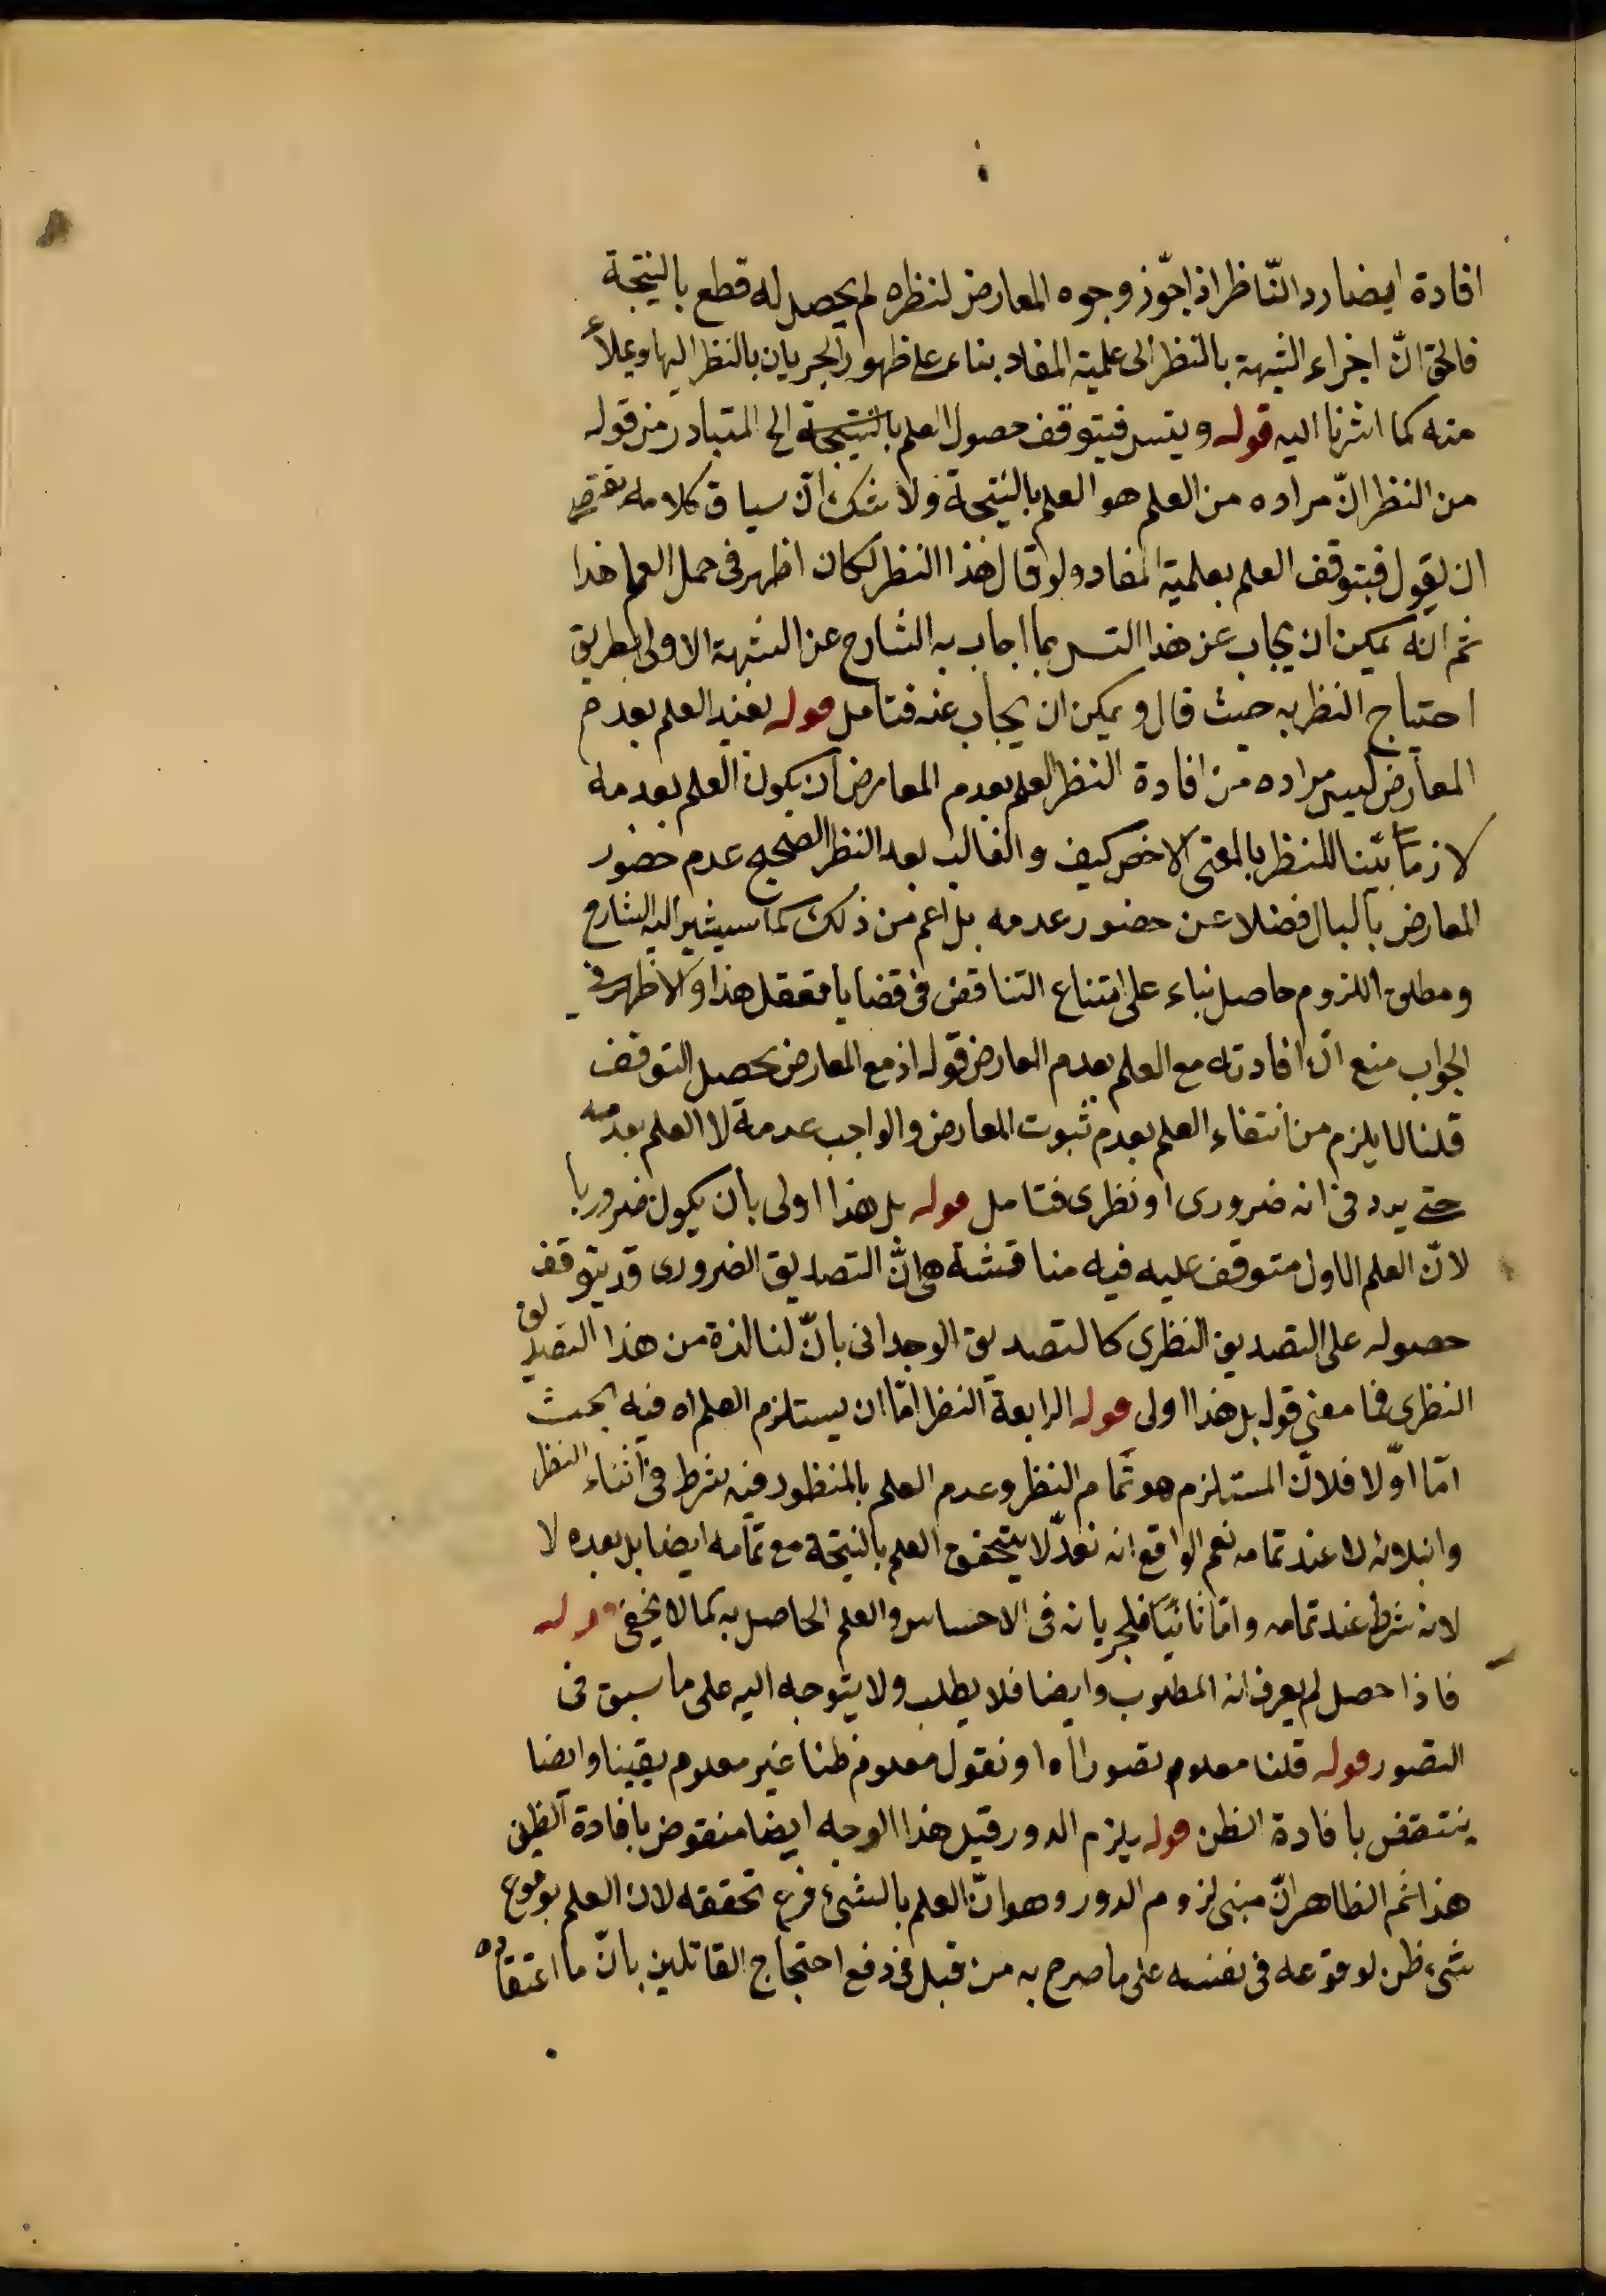 افادة ايضا رد الناظر اذا جوّز وجوه المعارض لنظره لم يحصل له قطع بالنتيجة
فالحق انّ اجراء الشبهة بالنظر الى علمية المفاد بناء على ظهور الجريان بالنظر اليها ويعلم
منه كما اشرنا اليه قوله ويتسر فيتوقف حصول العلم بالنتيجة الخ المتبادر من قوله
من النظر انّ مراده من العلم هو العلم بالنتيجة ولا شك انّ سياق كلامه يقتضى
ان يقول فيتوقف العلم بعلمية المفاد ولو قال هذا النظر لكان اظهر فى حمل العلم هذا
ثم انّه يمكن ان يجاب عن هذا التسر بما اجاب به الشارح عن الشبهة الاولى بطريق
احتياج النظر به حيث قال ويمكن ان يجاب عنه فتامل قوله يفيد العلم بعدم
المعارض ليس مراده من افادة النظر العلم بعدم المعارض ان يكون العلم بعدمه
لازما بيّنا للنظر بالمعنى الاخص كيف والغالب بعد النظر الصحيح عدم حضور
المعارض بالبال فضلا عن حضور عدمه بل اعم من ذلك كما سيشير اليه الشارح
ومطلق اللزوم حاصل بناء على امتناع التناقض فى قضايا متعقل هذا والاظهر فى
الجواب منع انّ افادته مع العلم بعدم المعارض قوله اذ مع المعارض يحصل التوقف
قلنا لا يلزم من انتفاء العلم بعدم ثبوت المعارض والواجب عدمه لا العلم بعدمه
حتى يرد فى انه ضرورى او نظرى فتامل قوله بل هذا اولى بان يكون ضروريا
لانّ العلم الاول متوقف عليه فيه مناقشة هى انّ التصديق الضرورى قد يتوقف
حصوله على التصديق النظرى كالتصديق الوجدانى بانّ لنا لذة من هذا التصديق
النظرى فما معنى قوله بل هذا اولى قوله الرابعة النظر امّا ان يستلزم العلم اه فيه بحث
امّا اوّلا فلانّ المستلزم هو تمام النظر وعدم العلم بالمنظور فيه شرط فى اثناء النظر
وابتدائه لا عند تمامه نعم الواقع انه لا يتحقق العلم بالنتيجة مع تمامه ايضا بل بعده لا
لانه شرط عند تمامه وامّا ثانيا فلجريانه فى الاحساس والعلم الحاصل به كما لا يخفى قوله
فاذا حصل لم يعرف انه المطلوب وايضا فلا يطلب ولا يتوجه اليه على ما سبق فى
التصور قوله قلنا معلوم تصورا اه او نقول معلوم ظنا غير معلوم يقينا وايضا
ينتقض بافادة الظن قوله يلزم الدور قيل هذا الوجه ايضا منقوض بافادة الظن
هذا ثم الظاهر انّ مبنى لزوم الدور وهو انّ العلم بالشئ فرع تحققه لان العلم بوقوع
شىء ظن لوقوعه فى نفسه على ما صرح به من قبل فى دفع احتجاج القائلين بانّ ما اعتقاده